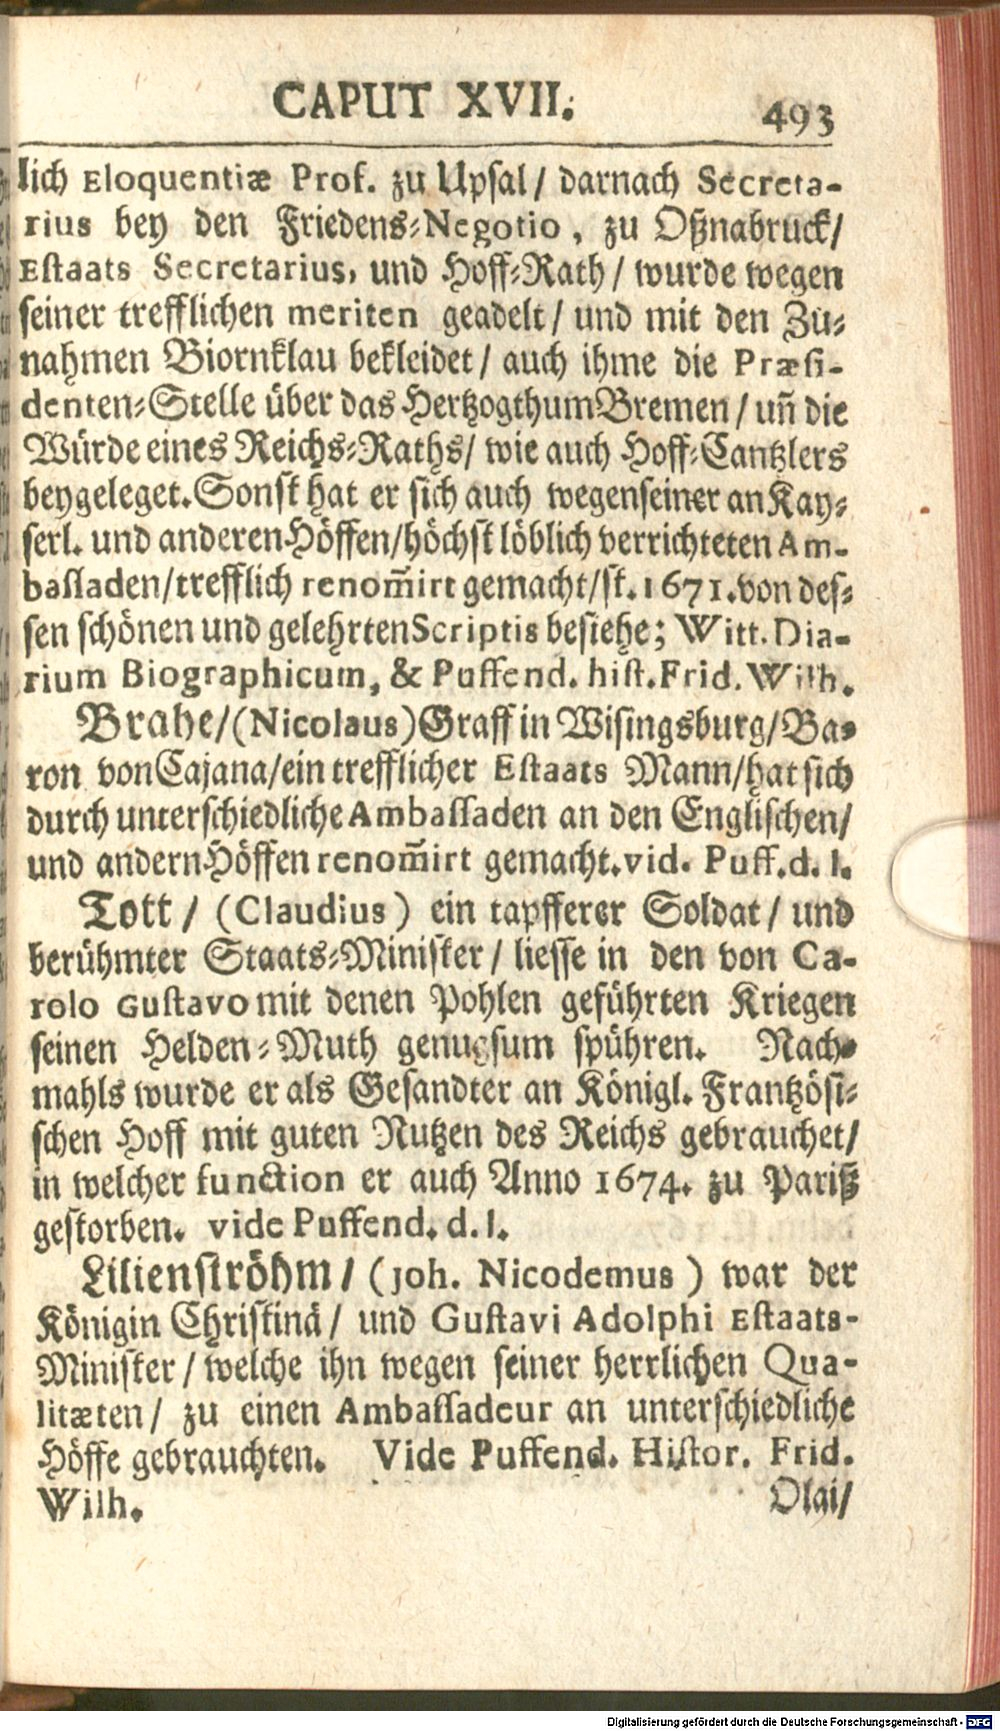 CAPUT XVII. 493
lich Eloquentiæ Prof. zu Upsal / darnach Secreta-
rius bey den Friedens-Negotio, zu Oßnabruck /
Estaats Secretarius, und Hoff-Rath / wurde wegen
seiner trefflichen meriten geadelt / und mit den Zu-
nahmen Biornklau bekleidet / auch ihme die Præsi-
denten-Stelle über das Hertzogthum Bremen / uñ die
Würde eines Reichs-Raths / wie auch Hoff-Cantzlers
beygeleget. Sonst hat er sich auch wegen seiner an Kay-
serl. und anderen Höffen / höchst löblich verrichteten Am-
bassaden / trefflich renom̃irt gemacht / st. 1671. von des-
sen schönen und gelehrten Scriptis besiehe; Witt. Dia-
rium Biographicum, & Puffend. hist. Frid. Wilh.
Brahe / (Nicolaus) Graff in Wisingsburg / Ba-
ron von Cajana / ein trefflicher Estaats Mann / hat sich
durch unterschiedliche Ambassaden an den Englischen /
und andern Höffen renom̃irt gemacht. vid. Puff. d. l.
Tott / (Claudius) ein tapfferer Soldat / und
berühmter Staats-Minister / liesse in den von Ca-
rolo Gustavo mit denen Pohlen geführten Kriegen
seinen Helden-Muth genugsum spühren. Nach-
mahls wurde er als Gesandter an Königl. Frantzösi-
schen Hoff mit guten Nutzen des Reichs gebrauchet /
in welcher function er auch Anno 1674. zu Pariß
gestorben. vide Puffend. d. l.
Lilienströhm / (Joh. Nicodemus) war der
Königin Christinä / und Gustavi Adolphi Estaats-
Minister / welche ihn wegen seiner herrlichen Qua-
litæten / zu einen Ambassadeur an unterschiedliche
Höffe gebrauchten. Vide Puffend. Histor. Frid.
Wilh. Olai /
Digitalisierung gefördert durch die Deutsche Forschungsgemeinschaft - DFG